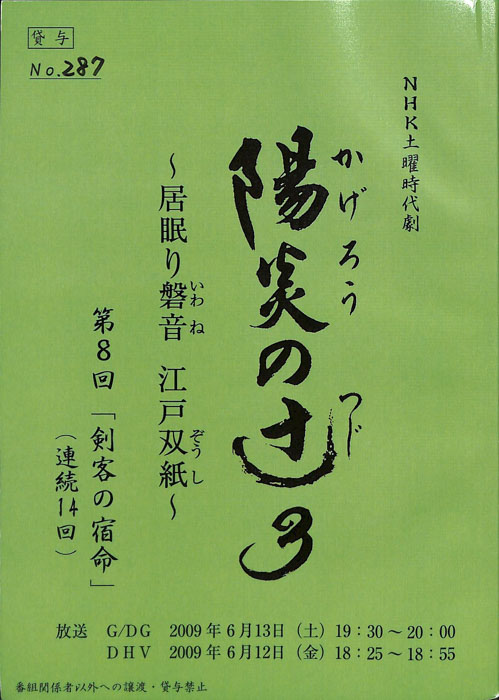 貸与
No.287
NHK土曜時代劇
かげろう つじ
陽炎の辻3
～居眠り磐音 江戸双紙～
いわ ね ぞうし
第8回「剣客の宿命」
（連続14回）
放送 G/DG 2009年6月13日（土）19：30～20：00
DHV 2009年6月12日（金）18：25～18：55
番組関係者以外への譲渡・貸与禁止